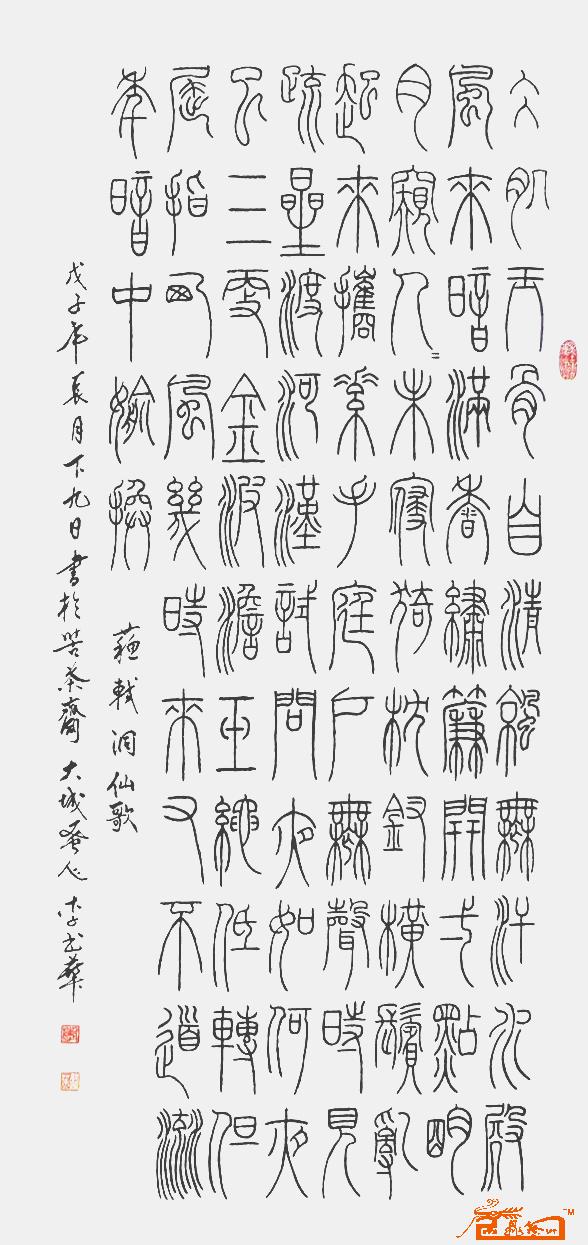 冰肌玉骨自清涼無汗水殿
風來暗滿香繡簾開弌點明
月窺人〻未寢猗枕釵橫鬢亂
起來攜素手庭戶無聲時見
疏星渡河漢試問夜如何夜
已三更金波澹玉繩低轉但
屈指西風幾時來又不道流
年暗中媮換
蘇軾洞仙歌
戊子年長月下九日書於苦茶齋大城